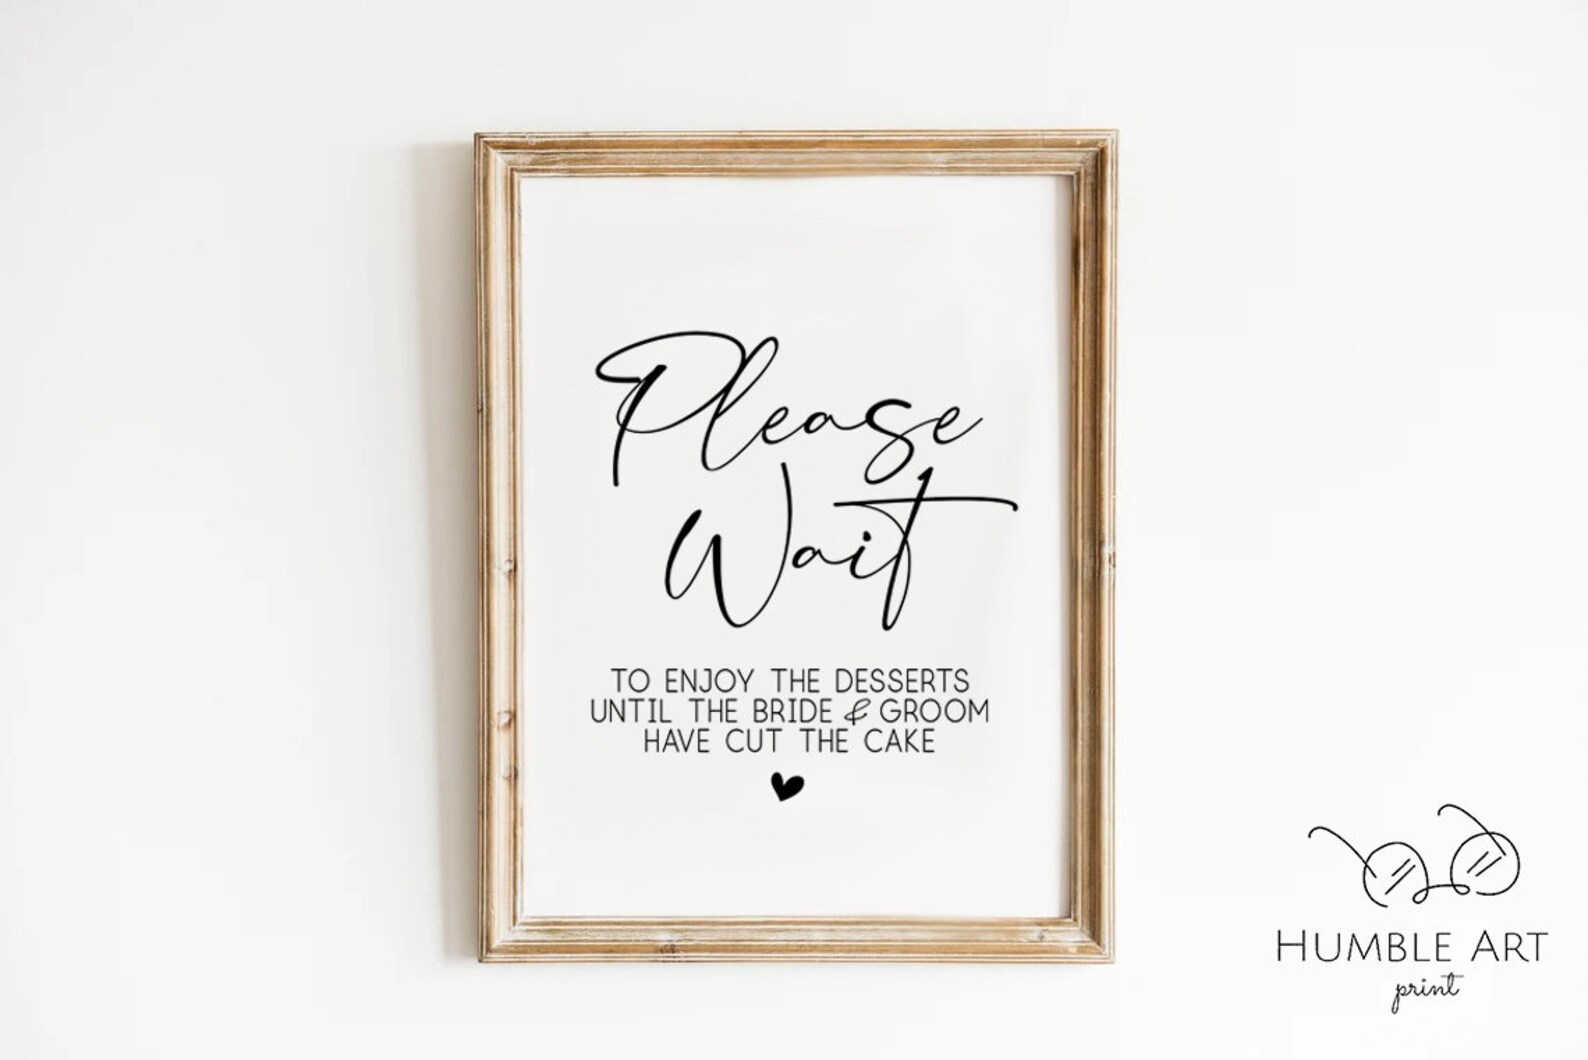 Please
Wait
TO ENJOY THE DESSERTS
UNTIL THE BRIDE & GROOM
HAVE CUT THE CAKE
HUMBLE ART
print